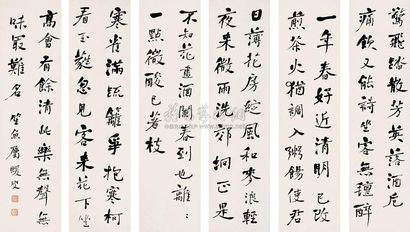 驚飛踏散芳英落酒卮
痛飲又能詩坐客無氈醉
一年春好近清明已改
煎茶火猶調入粥餳使君
日薄花房綻風和麥浪輕
夜來微雨洗郊坰正是
不知花盡酒闌春到也離〻
一點微酸已著枝
寒雀滿疏籬爭抱寒柯
看玉蕤忽見客來花下坐
高會有餘清此樂無聲無
味最難名